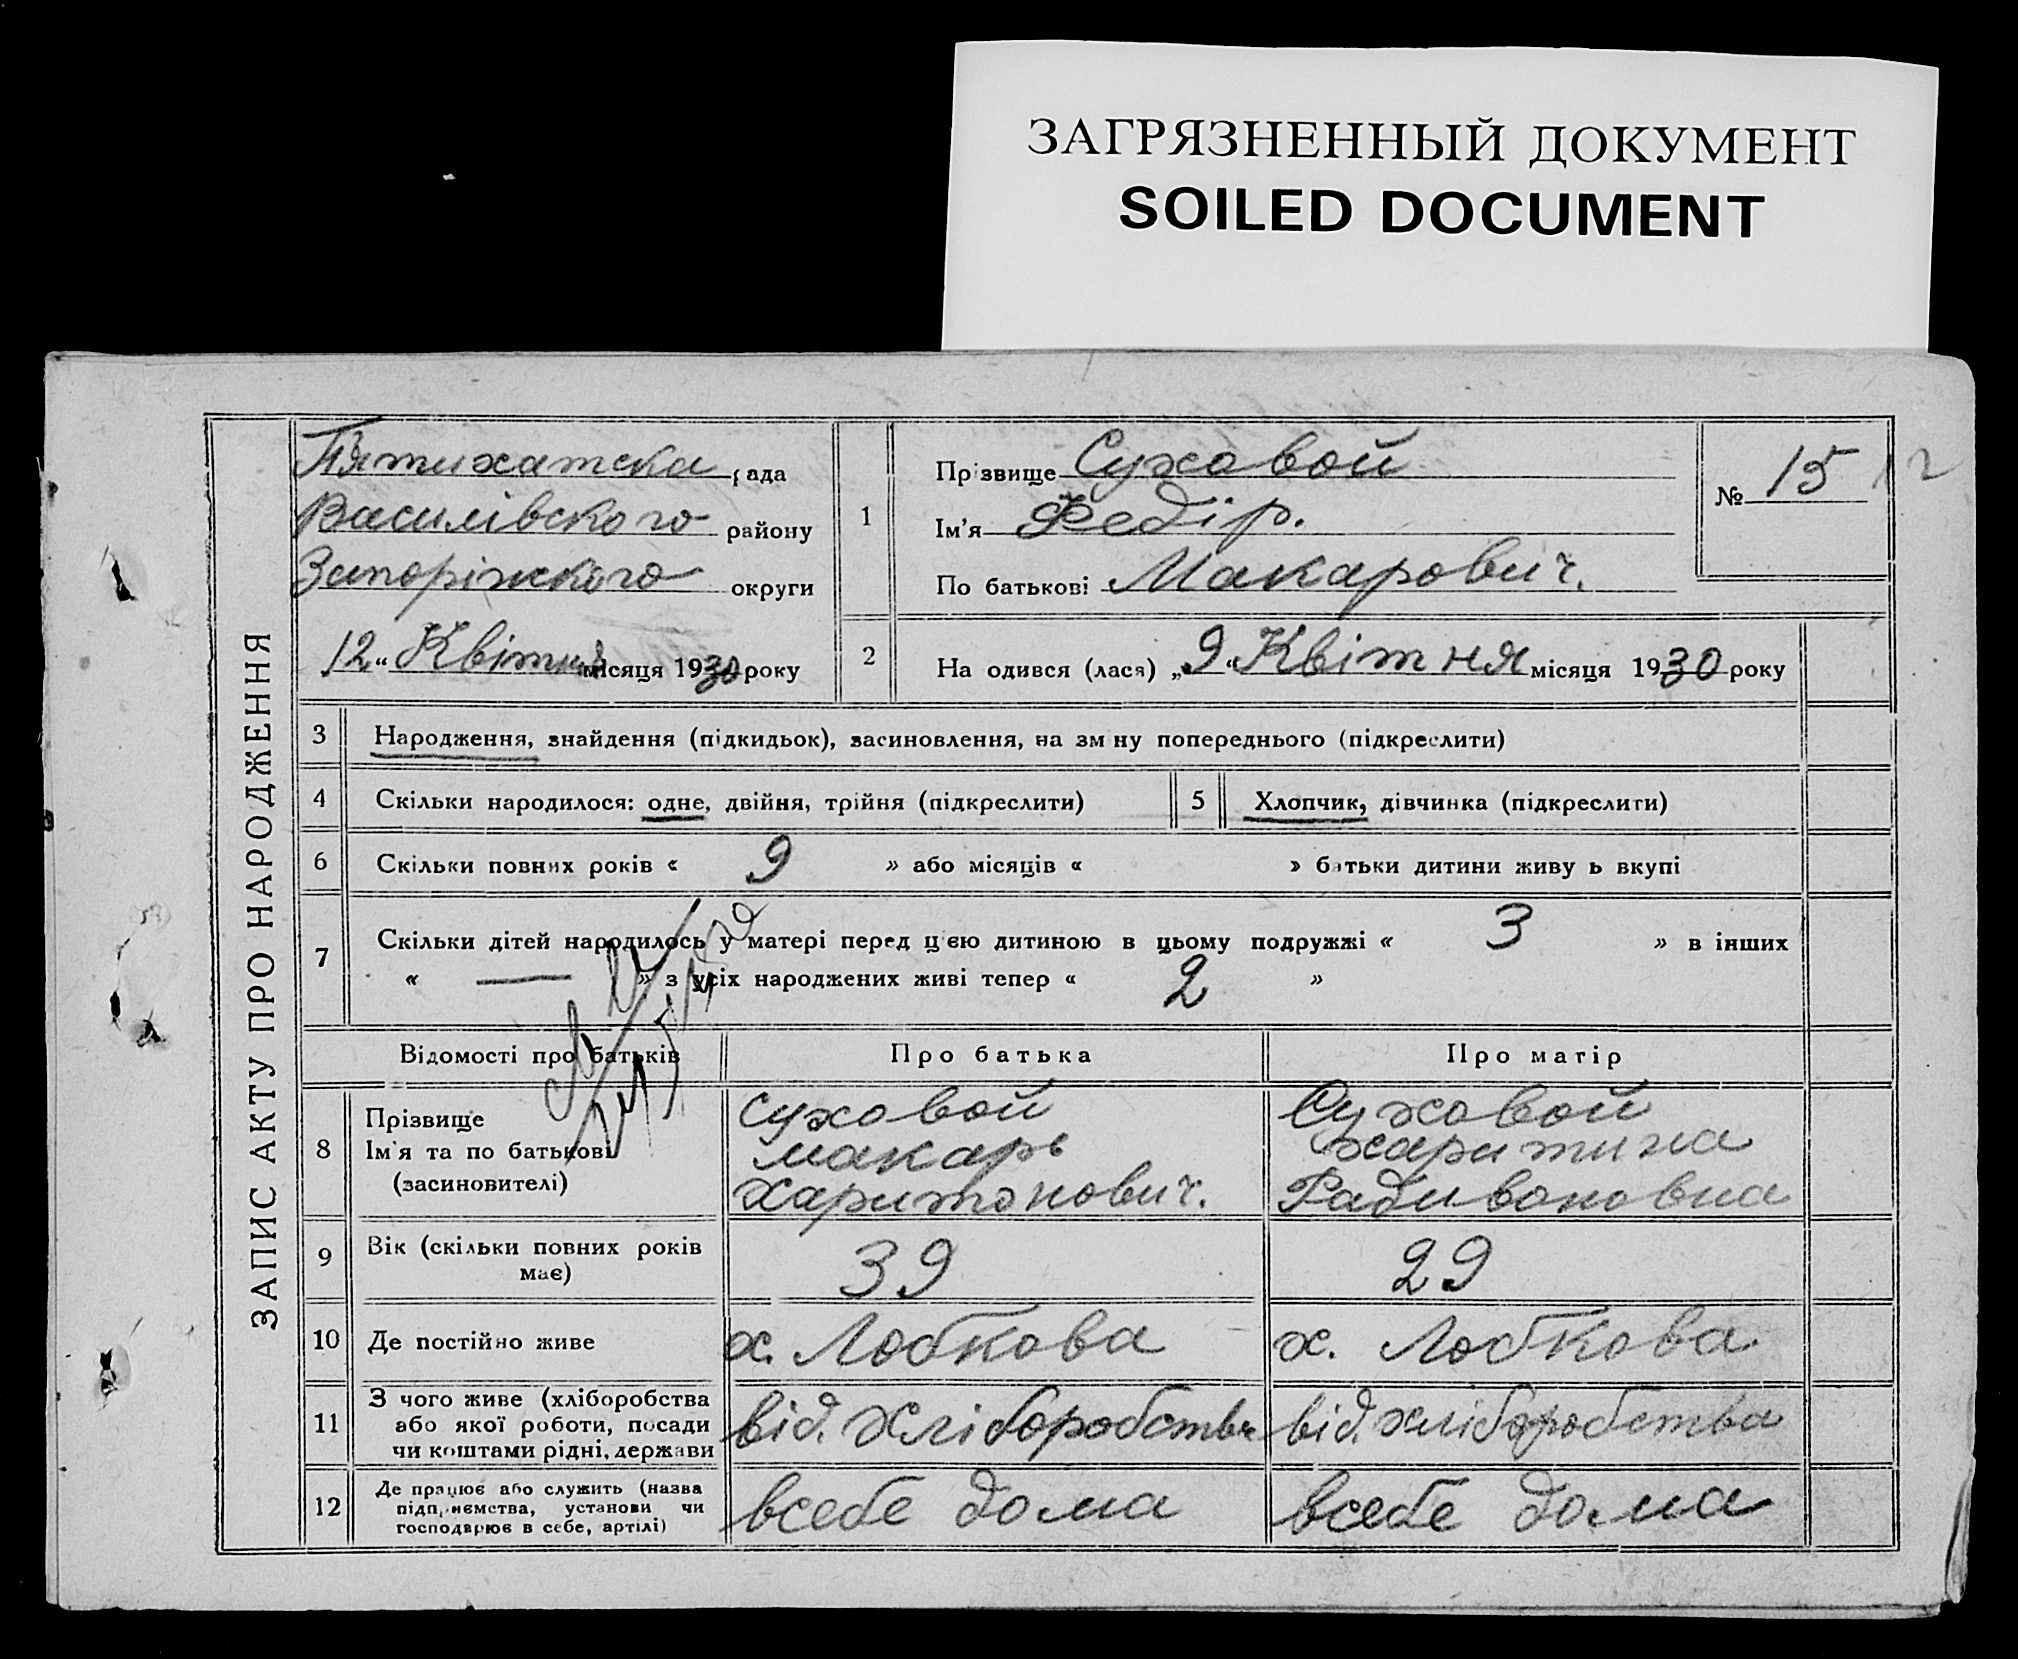 ЗАГРЯЗНЕННЫЙ ДОКУМЕНТ
SOILED DOCUMENT
ЗАПИС АКТУ ПРО НАРОДЖЕННЯ
Пятихатска рада
Василівского району
Запоріжкого округи
12 „ Квітня місяця 1930 року
1
Прізвище Суховой
Ім'я Федір.
По батькові Макарович.
№ 15
2
На одився (лася) „9“ Квітня місяця 1930 року
3 Народження, знайдення (підкидьок), засиновлення, на зміну попереднього (підкреслити)
4 Скільки народилося: одне, двійня, трійня (підкреслити)
5 Хлопчик, дівчинка (підкреслити)
6 Скільки повних років « 9 » або місяців « » батьки дитини живу ь вкупі
7 Скільки дітей народилось у матері перед цією дитиною в цьому подружжі « 3 » в інших
« — » з усіх народжених живі тепер « 2 »
Відомості про батьків Про батька Про матір
8
Прізвище
Ім'я та по батькові
(засиновителі)
Суховой
Макарь
Харитонович.
Суховой
Харитина
Радивоновна
9 Вік (скільки повних років
має)
39
29
10 Де постійно живе
х. Лобкова
х. Лобкова
11
З чого живе (хліборобства
або якої роботи, посади
чи коштами рідні, держави
від. Хліборобства
від. хліборобства
12
Де працює або служить (назва
підприємства, установи чи
господарює в себе, артілі)
всебе дома
всебе дома